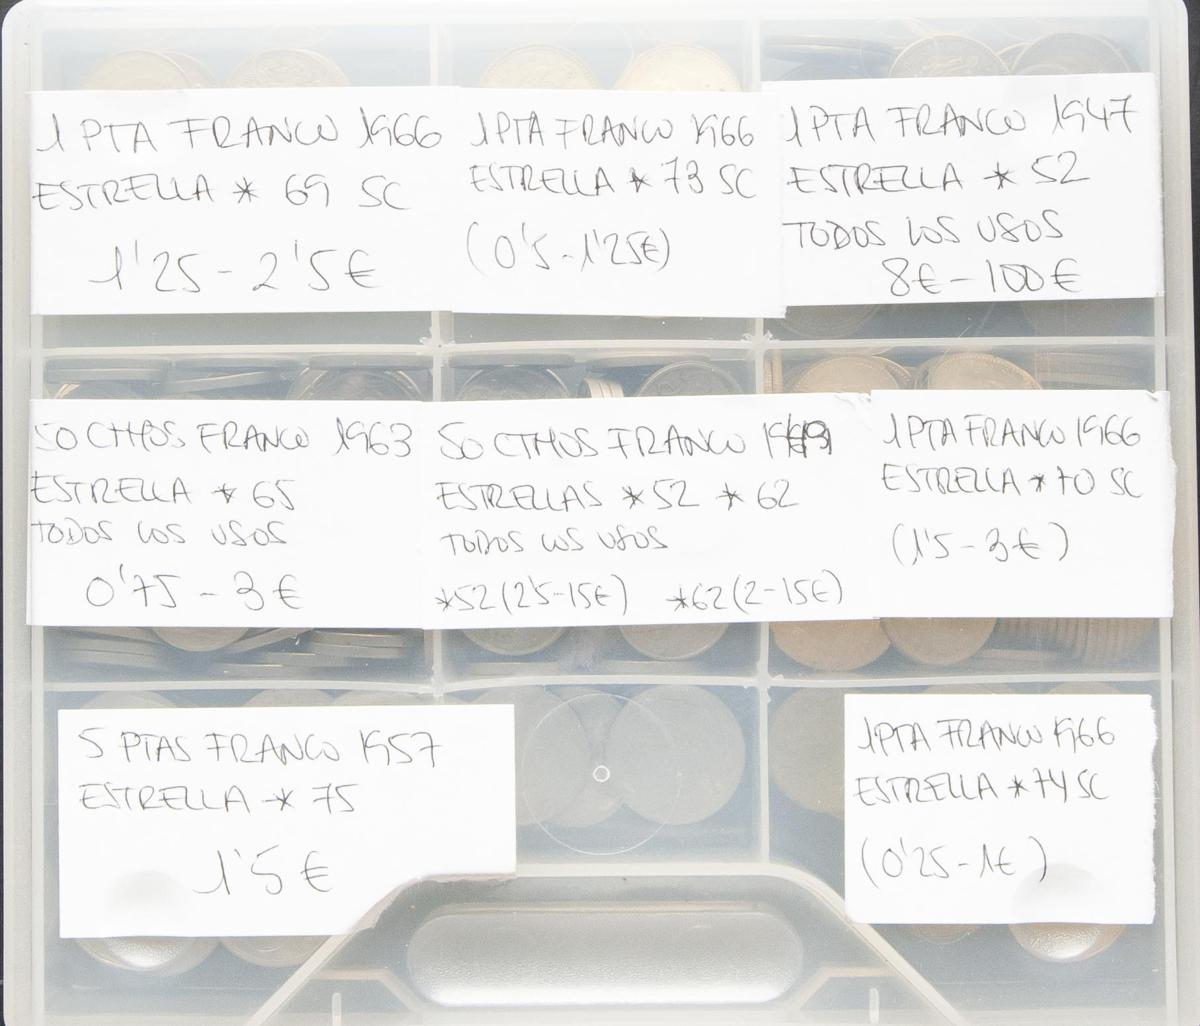 1 PTA FRANCO 1966
ESTRELLA * 69 SC
1'25 - 2'5€
1 PTA FRANCO 1966
ESTRELLA * 73 SC
(0'5 - 1'25€)
1 PTA FRANCO 1947
ESTRELLA * 52
TODOS LOS USOS
8€ - 100€
50 CTMOS FRANCO 1963
ESTRELLA * 65
TODOS LOS USOS
0'75 - 3€
50 CTMOS FRANCO
ESTRELLAS *52 *62
TODOS LOS USOS
*52 (2'5-15€) *62 (2-15€)
1 PTA FRANCO 1966
ESTRELLA * 70 SC
(1'5 - 3€)
5 PTAS FRANCO 1957
ESTRELLA * 75
1'5€
1 PTA FRANCO 1966
ESTRELLA * 74 SC
(0'25 - 1€)